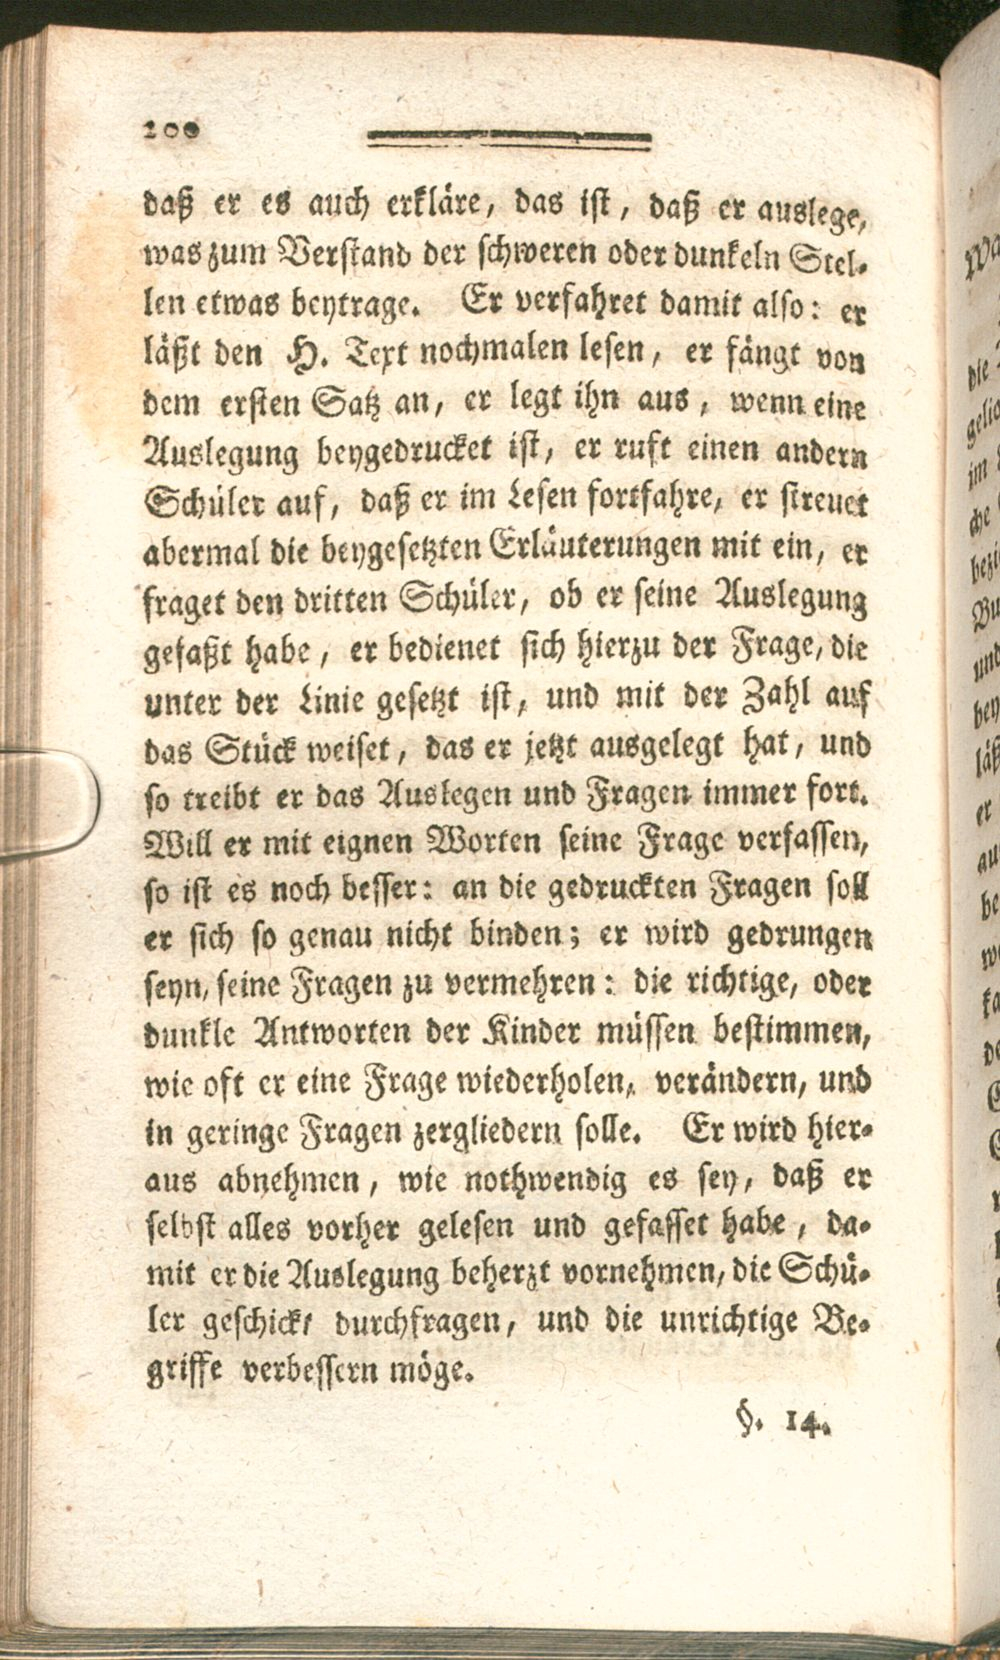 200
daß er es auch erkläre, das ist, daß er auslege,
was zum Verstand der schweren oder dunkeln Stel-
len etwas beytrage. Er verfahret damit also: er
läßt den H. Text nochmalen lesen, er fängt von
dem ersten Satz an, er legt ihn aus, wenn eine
Auslegung beygedrucket ist, er ruft einen andern
Schüler auf, daß er im Lesen fortfahre, er streuet
abermal die beygesetzten Erläuterungen mit ein, er
fraget den dritten Schüler, ob er seine Auslegung
gefaßt habe, er bedienet sich hierzu der Frage, die
unter der Linie gesetzt ist, und mit der Zahl auf
das Stück weiset, das er jetzt ausgelegt hat, und
so treibt er das Auslegen und Fragen immer fort.
Will er mit eignen Worten seine Frage verfassen,
so ist es noch besser: an die gedruckten Fragen soll
er sich so genau nicht binden; er wird gedrungen
seyn, seine Fragen zu vermehren: die richtige, oder
dunkle Antworten der Kinder müssen bestimmen,
wie oft er eine Frage wiederholen, verändern, und
in geringe Fragen zergliedern solle. Er wird hier-
aus abnehmen, wie nothwendig es sey, daß er
selbst alles vorher gelesen und gefasset habe, da-
mit er die Auslegung beherzt vornehmen, die Schü-
ler geschickt durchfragen, und die unrichtige Be-
griffe verbessern möge.
§. 14.